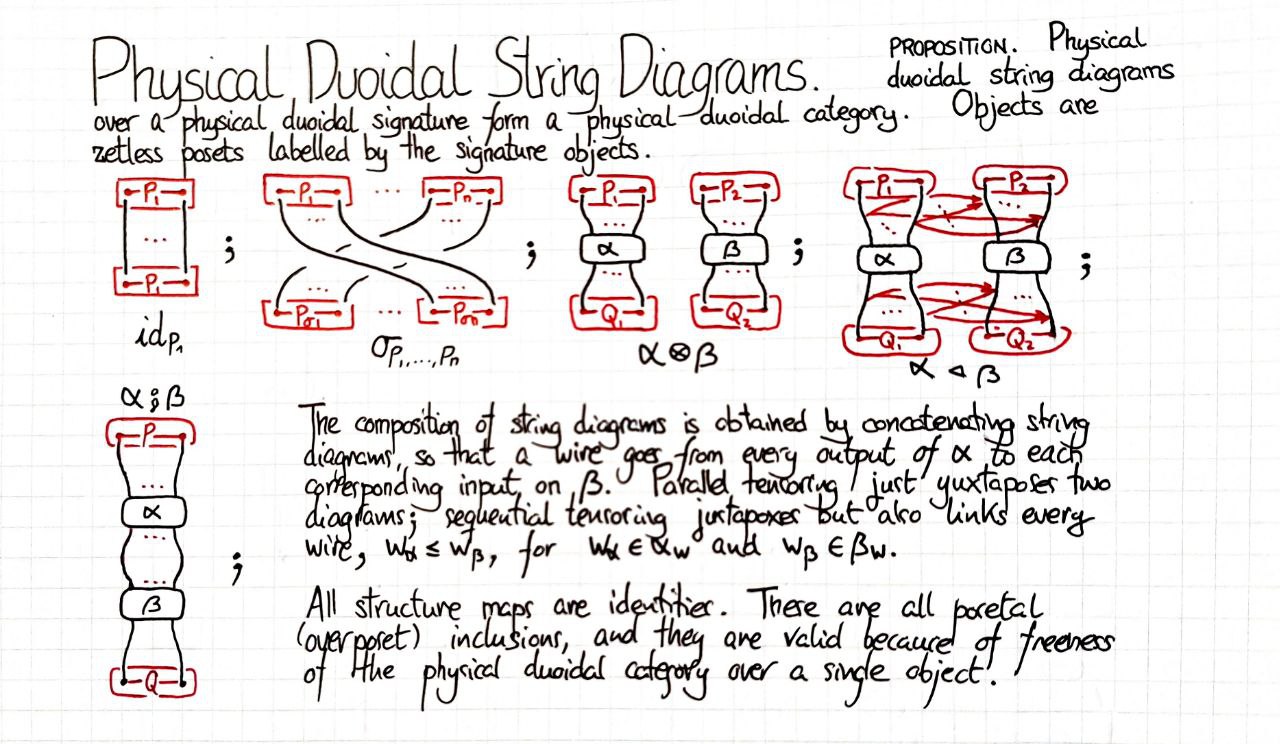 Physical Duoidal String Diagrams. PROPOSITION. Physical
duoidal string diagrams
over a physical duoidal signature form a physical duoidal category. Objects are
zetless posets labelled by the signature objects.
P₁ P₁ ... Pₙ P₁ P₂ P₁ P₂
... ... ... ... ... ... ...
; α β α β
; ; ;
... ... ... ...
P₁ Pσ₁ ... Pσₙ Q₁ Q₂ Q₁ Q₂
id_P₁ σ_P₁,...,Pₙ α ⊗ β α ◁ β
α ⨾ β
P
...
α
...
...
β
Q
;
The composition of string diagrams is obtained by concatenating string
diagrams, so that a wire goes from every output of α to each
corresponding input on β. Parallel tensoring just yuxtaposes two
diagrams; sequential tensoring juxtaposes but also links every
wire, wα ≤ wβ, for wα ∈ αw and wβ ∈ βw.
All structure maps are identities. These are all posetal
(over poset) inclusions, and they are valid because of freeness
of the physical duoidal category over a single object.